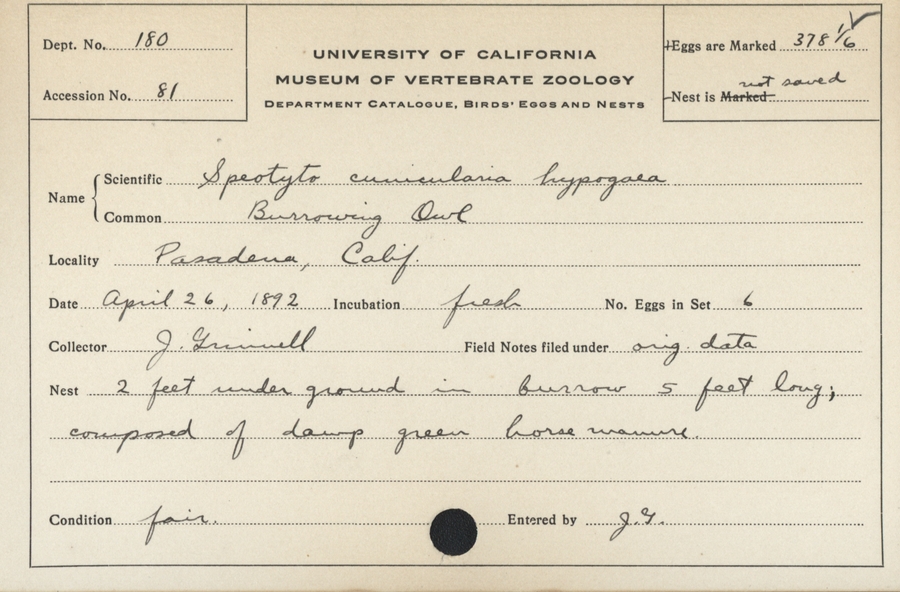 Dept. No. 180
Accession No. 81
UNIVERSITY OF CALIFORNIA
MUSEUM OF VERTEBRATE ZOOLOGY
DEPARTMENT CATALOGUE, BIRDS' EGGS AND NESTS
Eggs are Marked 378 1/6
not saved
Nest is Marked
Name
Scientific Speotyto cunicularia hypogaea
Common Burrowing Owl
Locality Pasadena, Calif.
Date April 26, 1892 Incubation fresh No. Eggs in Set 6
Collector J. Grinnell Field Notes filed under orig. data
Nest 2 feet under ground in burrow 5 feet long;
composed of damp green horse manure.
Condition fair. Entered by J.G.